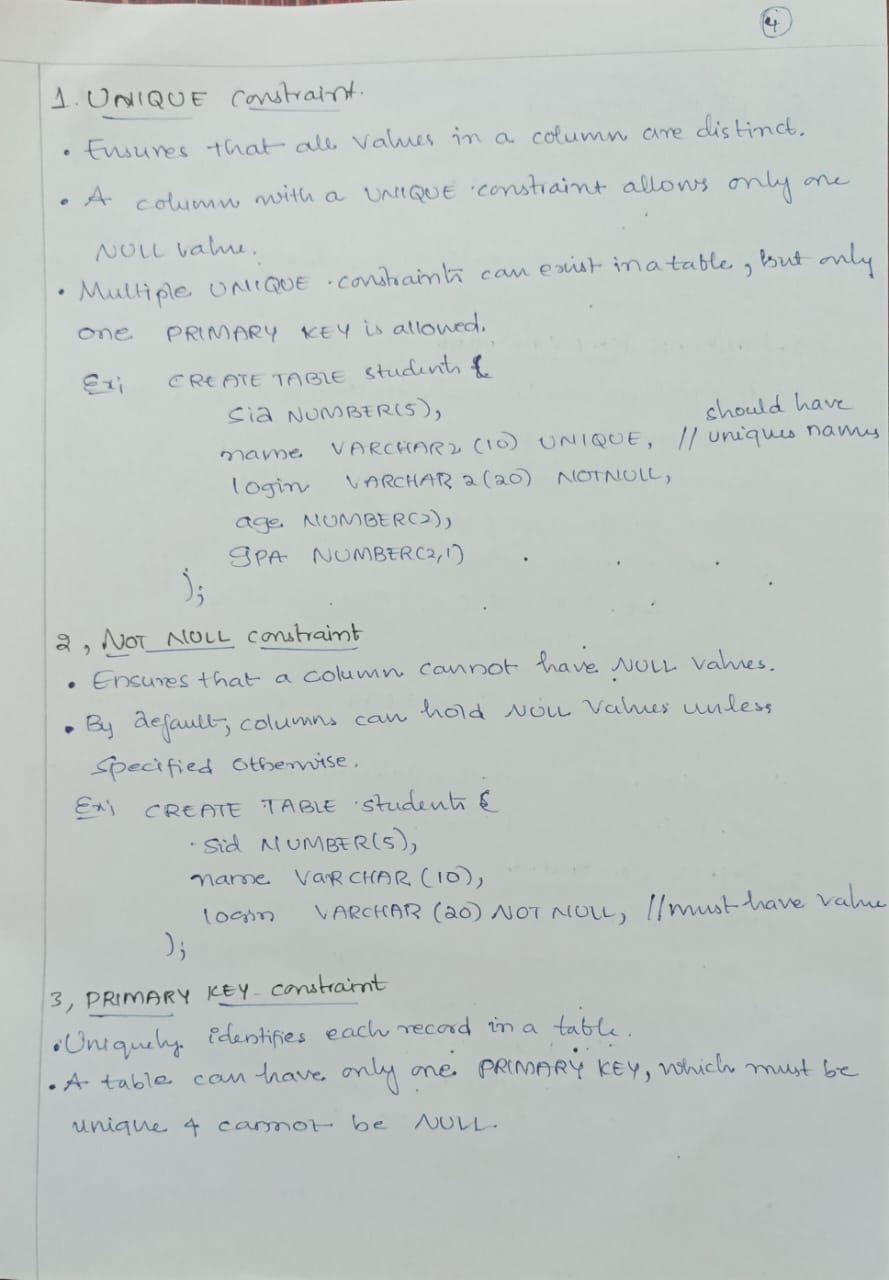 4
1. UNIQUE constraint.
• Ensures that all values in a column are distinct.
• A column with a UNIQUE constraint allows only one
NULL value.
• Multiple UNIQUE constraints can exist in a table, but only
one PRIMARY KEY is allowed.
Ex; CREATE TABLE students (
sid NUMBER(5),
should have
name VARCHAR2 (10) UNIQUE, // uniques names
login VARCHAR 2(20) NOTNULL,
age NUMBER(2),
gPA NUMBER(2,1)
);
2, NOT NULL constraint
• Ensures that a column cannot have NULL values.
• By default, columns can hold NULL values unless
specified otherwise.
Ex; CREATE TABLE students (
sid NUMBER(5),
name VARCHAR (10),
login VARCHAR (20) NOT NULL, //must have value
);
3, PRIMARY KEY constraint
• Uniquely identifies each record in a table.
• A table can have only one PRIMARY KEY, which must be
unique & cannot be NULL.